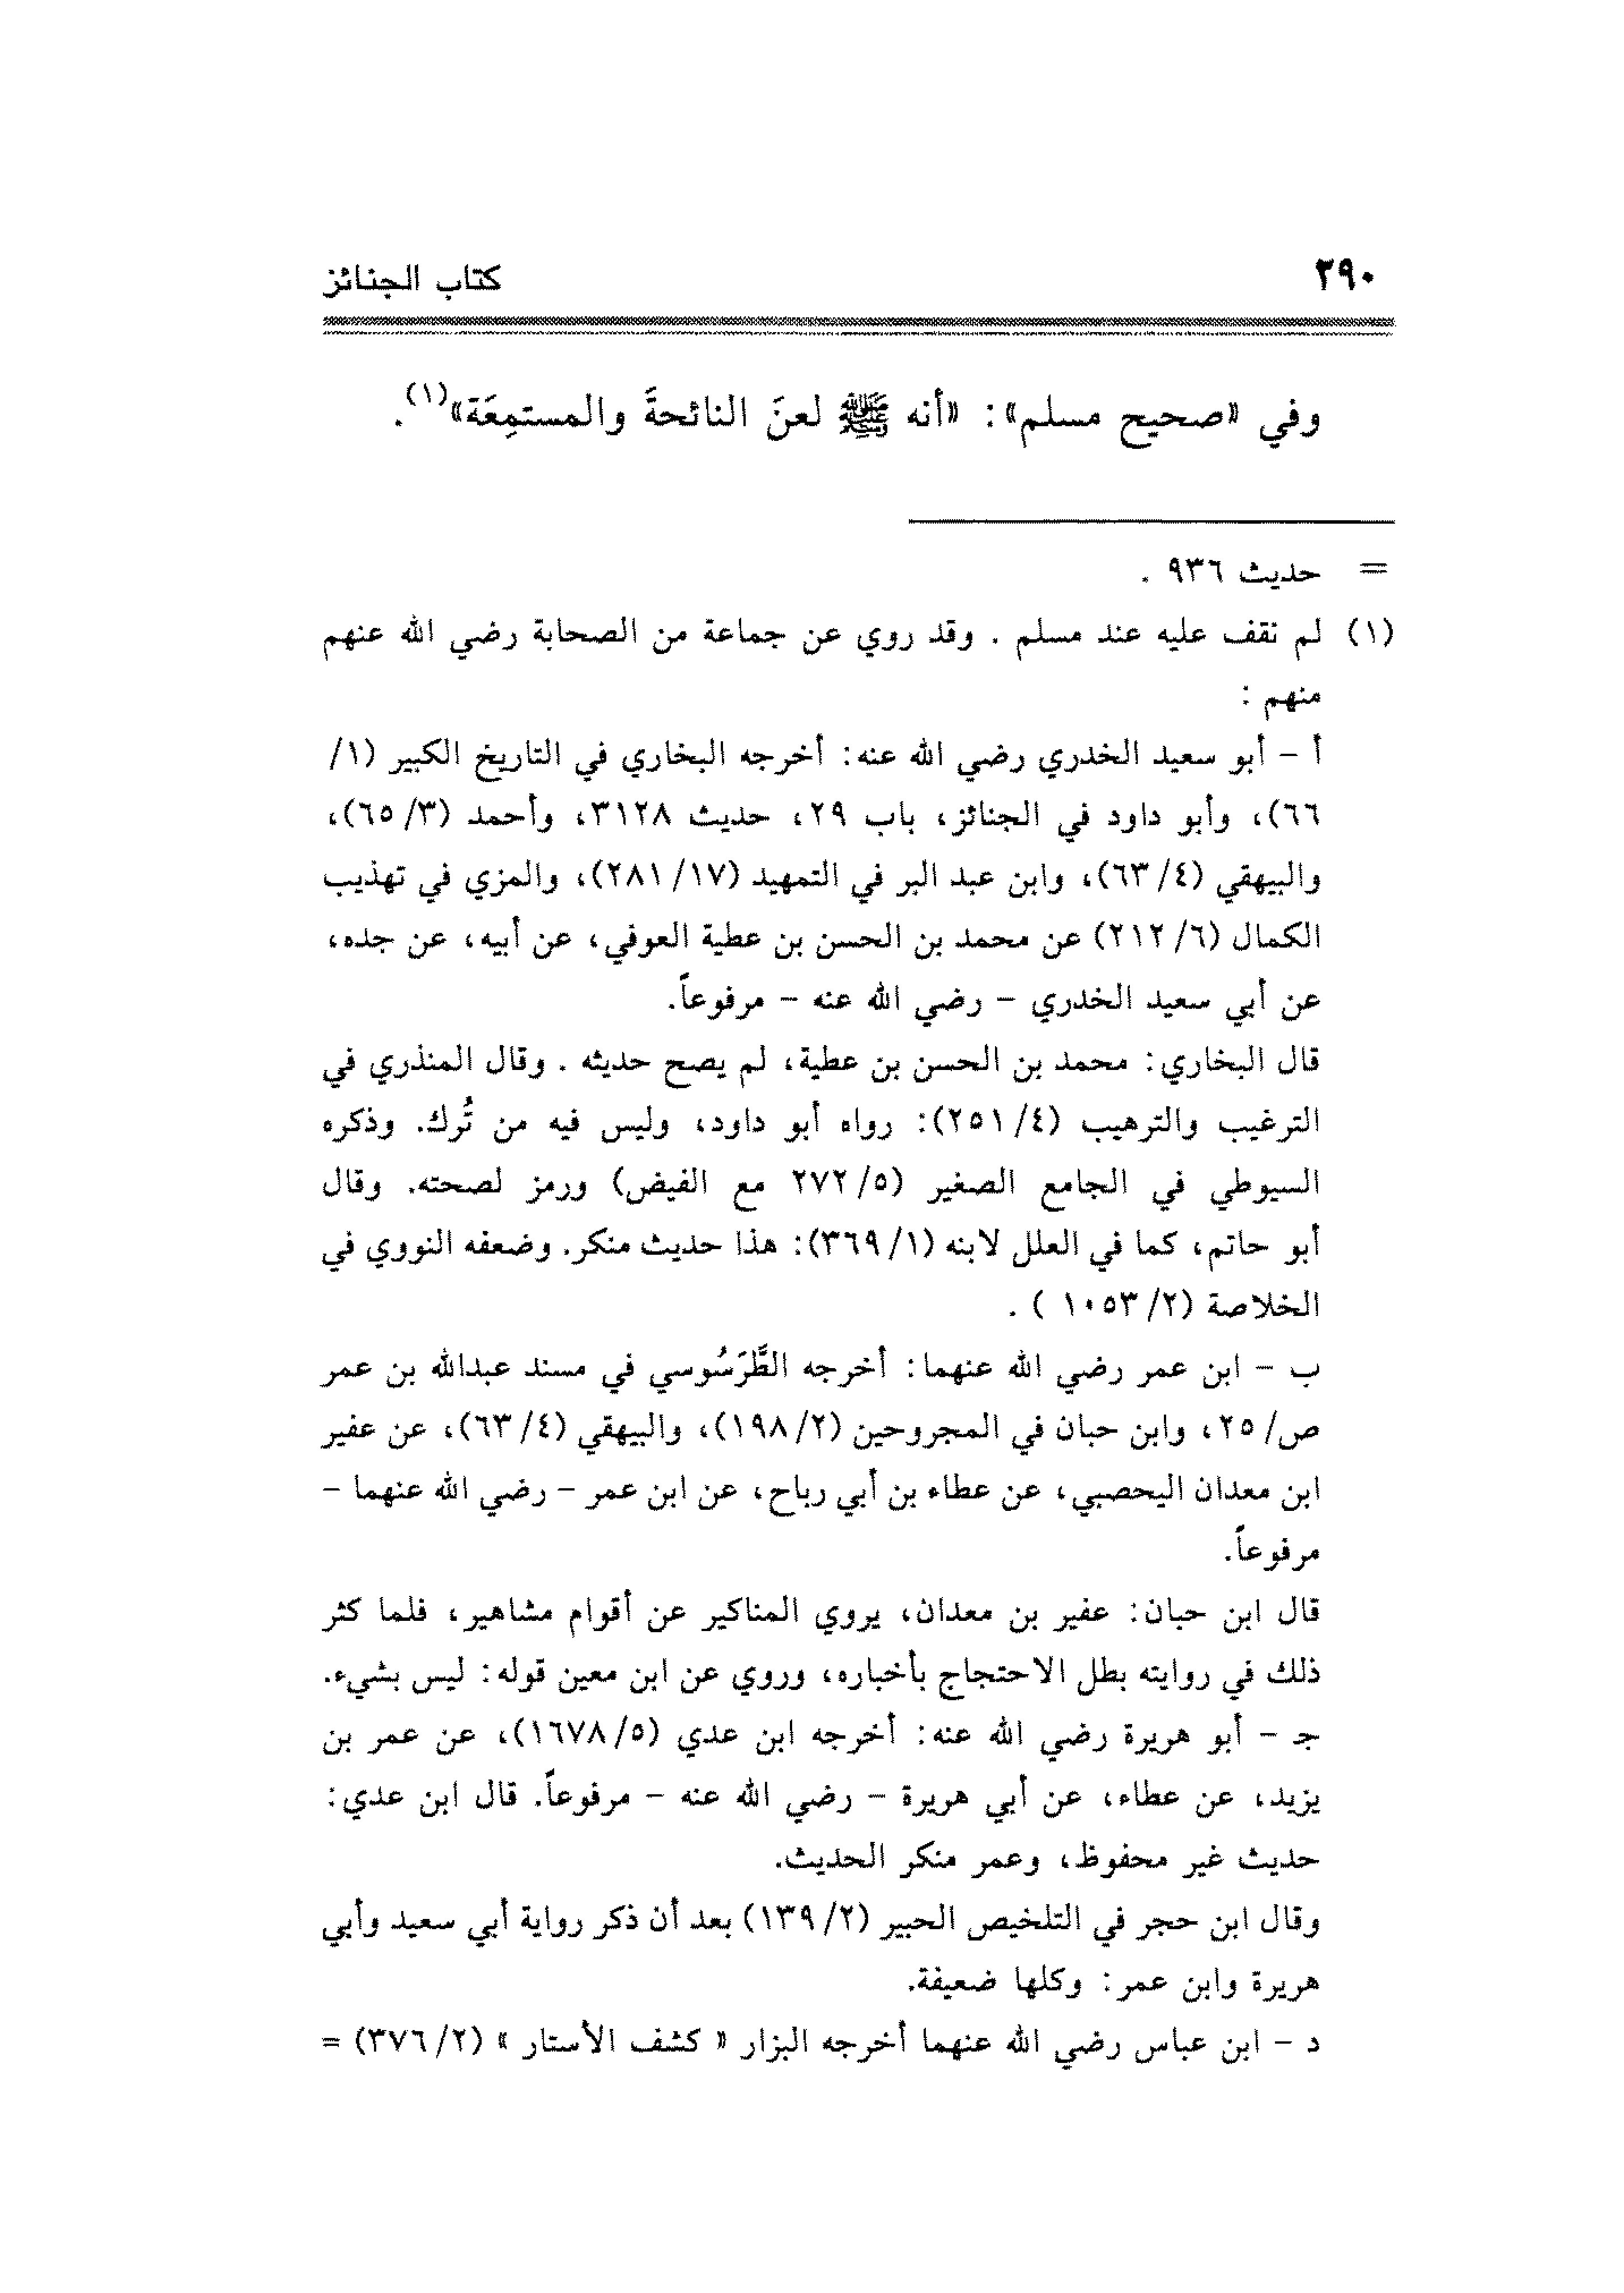 ٢٩٠ كتاب الجنائز
وفي «صحيح مسلم»: «أنه ﷺ لعنَ النائحةَ والمستمِعَة»(١).
= حديث ٩٣٦ .
(١) لم نقف عليه عند مسلم . وقد روي عن جماعة من الصحابة رضي الله عنهم
منهم :
أ - أبو سعيد الخدري رضي الله عنه: أخرجه البخاري في التاريخ الكبير (١/
٦٦)، وأبو داود في الجنائز، باب ٢٩، حديث ٣١٢٨، وأحمد (٣/ ٦٥)،
والبيهقي (٤/ ٦٣)، وابن عبد البر في التمهيد (١٧/ ٢٨١)، والمزي في تهذيب
الكمال (٦/ ٢١٢) عن محمد بن الحسن بن عطية العوفي، عن أبيه، عن جده،
عن أبي سعيد الخدري - رضي الله عنه - مرفوعاً.
قال البخاري: محمد بن الحسن بن عطية، لم يصح حديثه . وقال المنذري في
الترغيب والترهيب (٤/ ٢٥١): رواه أبو داود، وليس فيه من تُرك. وذكره
السيوطي في الجامع الصغير (٥/ ٢٧٢ مع الفيض) ورمز لصحته. وقال
أبو حاتم، كما في العلل لابنه (١/ ٣٦٩): هذا حديث منكر. وضعفه النووي في
الخلاصة (٢/ ١٠٥٣ ) .
ب - ابن عمر رضي الله عنهما: أخرجه الطَّرَسُوسي في مسند عبدالله بن عمر
ص/ ٢٥، وابن حبان في المجروحين (٢/ ١٩٨)، والبيهقي (٤/ ٦٣)، عن عفير
ابن معدان اليحصبي، عن عطاء بن أبي رباح، عن ابن عمر - رضي الله عنهما -
مرفوعاً.
قال ابن حبان: عفير بن معدان، يروي المناكير عن أقوام مشاهير، فلما كثر
ذلك في روايته بطل الاحتجاج بأخباره، وروي عن ابن معين قوله: ليس بشيء.
جـ - أبو هريرة رضي الله عنه: أخرجه ابن عدي (٥/ ١٦٧٨)، عن عمر بن
يزيد، عن عطاء، عن أبي هريرة - رضي الله عنه - مرفوعاً. قال ابن عدي:
حديث غير محفوظ، وعمر منكر الحديث.
وقال ابن حجر في التلخيص الحبير (٢/ ١٣٩) بعد أن ذكر رواية أبي سعيد وأبي
هريرة وابن عمر: وكلها ضعيفة.
د - ابن عباس رضي الله عنهما أخرجه البزار « كشف الأستار » (٢/ ٣٧٦) =